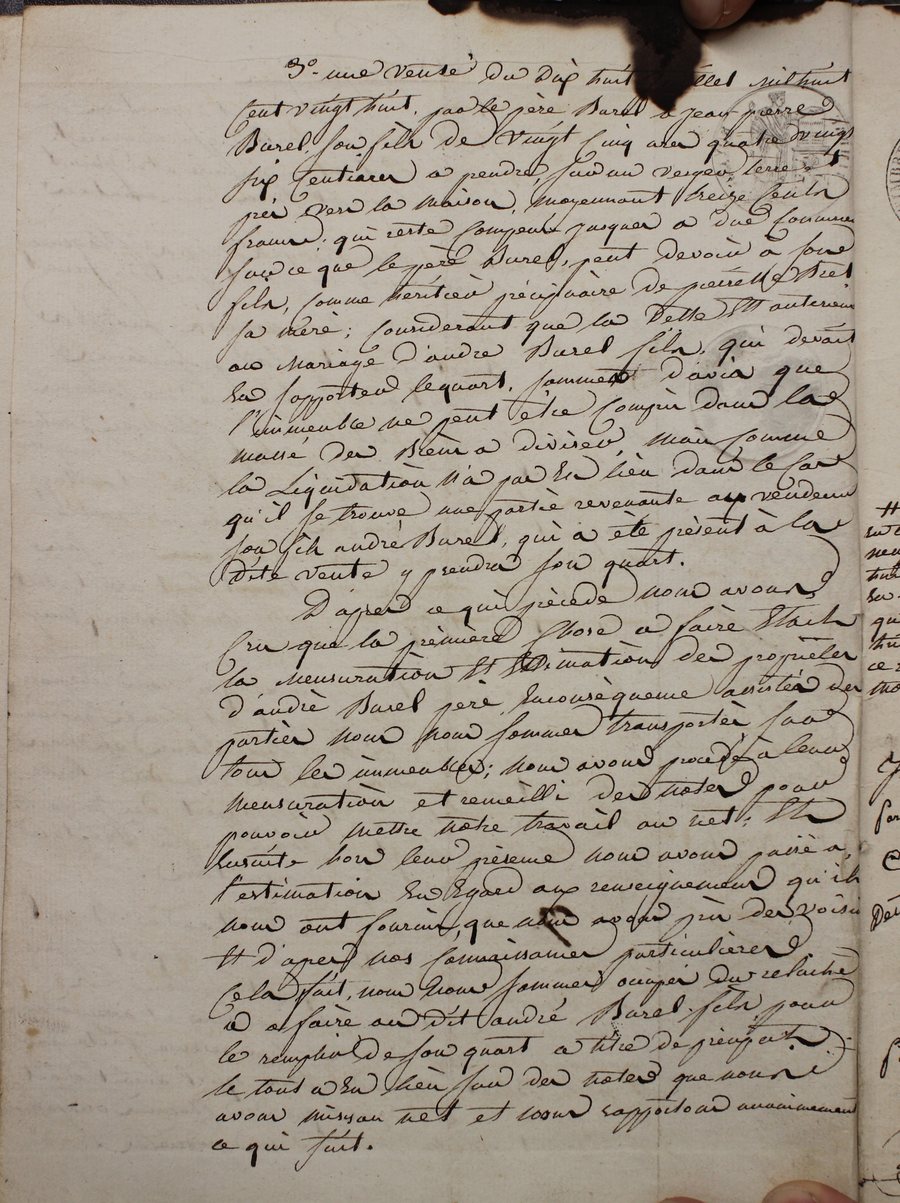 3°. une vente du dix huit juillet mil huit
Cent vingt huit, par le père Burel a jean pierre
Burel, son fils de vingt Cinq ares quatre vingt
six Centiares a prendre, sur un verger terre et
pré vers la maison, moyennant treize Cents
francs; qui reste Compensés jusques a due Concurrence
sur ce que le père Burel, peut devoir a son
fils, comme héritier préciputaire de pierrette
sa mère; Considerant que la dette est anterieure
au Mariage d'andré Burel fils, qui devait
En supporter le quart, sommes d'avis que
l'immeuble ne peut être Compris dans la
masse des Biens a diviser, mais comme
la Liquidation n'a pas Eu lieu dans le Cas
qu'il se trouve une partie revenante au vendeur
son fils andré Burel, qui a été présent à la
dite vente y prendra son quart.
D'après ce qui précède nous avons
Cru que la prèmière Chose a faire Etait
la Mensuration Et Estimation des propriétés
d'andré Burel père, En conséquence assistés des
parties nous nous sommes transportés sur
tous les immeubles; nous avons procédé à leur
mensuration et recueilli des notes pour
pouvoir mettre notre travail au net; Et
Ensuite hors leur présence nous avons passé a
l'estimation Eu Egard aux renseignements qu'ils
nous ont fournis, que nous avons pris des voisins
Et d'apres nos Connaissances particulières
Cela fait, nous Nous sommes occupés du relaché
a faire au dit andré Burel fils, pour
le remplir de son quart a titre de préciput;
le tout a Eu lieu sur des notes que nous
avons mis au net et nous rapportons unanimement
ce qui suit.